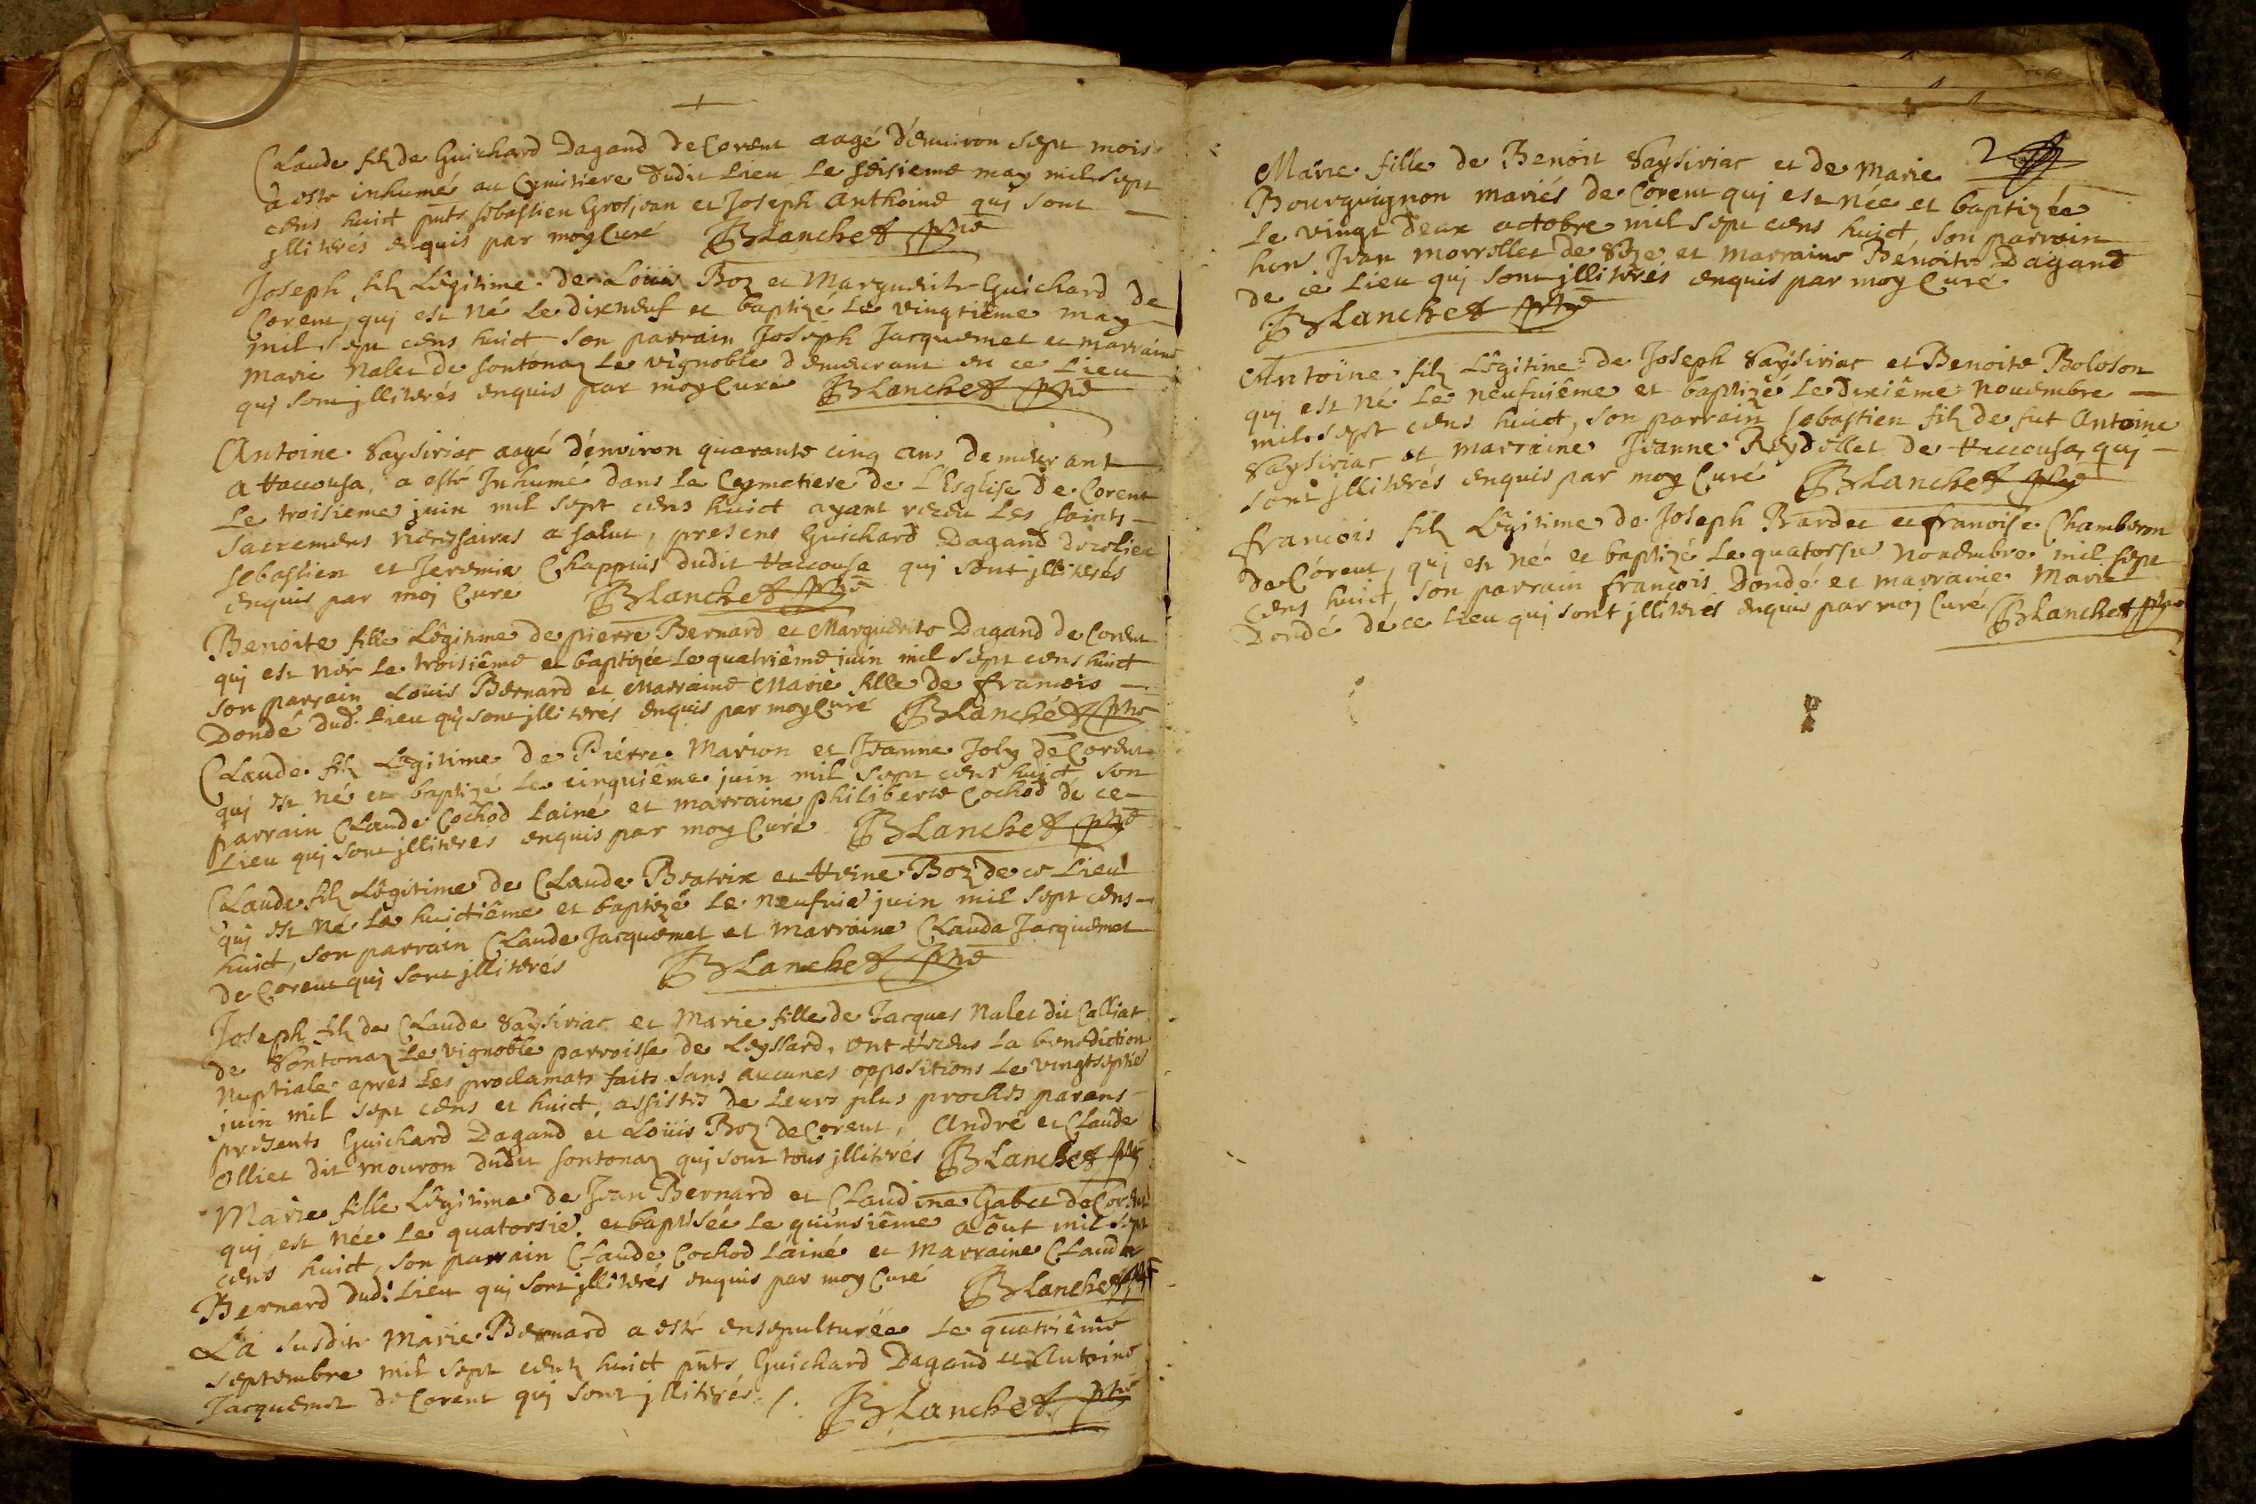 Claude filz de Guichard Dagand de Corent aagé d'environ sept mois
a esté inhumé au Cymitiere dudit Lieu le seisieme may mil sept
cens huict pnts sebastien Grosjean et Joseph Anthoine qui sont
jllitérés enquis par moy Curé Blanchet ptre
Joseph filz Légitime de Loüis Boz et Marguerite Guichard de
Corent, qui est né le dixneuf et baptizé le vingtième may
mil sept cens huict son parrain Joseph Jacquemet et marraine
Marie Nalet de sontonaz le vignoble demeurant en ce Lieu
qui sont jllitérés enquis par moy Curé Blanchet ptre
Antoine Vaysiriat aagé d'environ quarante cinq ans demeurant
a Haccousa, a esté Inhumé dans la Ceymetiere de L'Esglise de Corent
Le troisieme juin mil sept cens huict ayant receu les saints
Sacremens nécessaires a salut, presens Guichard Dagand
sebastien et Jeremie Chappuis dudit Haccousa qui sont jllitérés
enquis par moj Curé Blanchet ptre
Benoite fille Légitime de pierre Bernard et Marguerite Dagand de Corent
qui est née le troisième et baptizée le quatrième juin mil sept cens huict
son parrain Louis Bernard et Marraine Marie fille de francois
Dondé dud. Lieu qui sont jllitérés enquis par moy Curé Blanchet ptre
Claude filz Légitime de Pierre Marion et Jeanne Joly de Corent
qui est né et baptizé le cinquième juin mil sept cens huict son
parrain Claude Cochod lainé et marraine philiberte Cochod de ce
Lieu qui sont jllitérés enquis par moy Curé Blanchet ptre
Claude filz Légitime de Claude Beatrix et Boz de ce Lieu
qui est né le huictième et baptizé le neufuie juin mil sept cens
huict, son parrain Claude Jacquemet et marraine Clauda Jacquemet
de Corent qui sont jllitérés Blanchet ptre
Joseph filz de Claude Vaysiriat et Marie fille de Jacques Nalet dit Calliat
de Sontonaz Le vignoble parroisse de Leyssard, ont la benediction
Nuptiale apres les proclamats faits sans aucunes oppositions le vingtseptie
juin mil sept cens et huict, assistés de leurs plus proches parens
présents Guichard Dagand et Loüis Boz de Corent, André et Claude
Olliet dit mouron dudit sontonaz qui sont tous jllitérés Blanchet ptre
Marie fille Légitime de Jean Bernard et Claudine Gabet de Corent
qui est née le quatorsie. et baptisée le quinsième aôut mil sept
cens huict, son parrain Claude Cochod l'ainé et Marraine Claudine
Bernard dud. Lieu qui sont jllitérés enquis par moy Curé Blanchet ptre
La susdite Marie Bernard a esté ensepulturée le quatriême
septembre mil sept centz huict pnts Guichard Dagand et Antoine
Jacquemet de Corent qui sont jllitérés Blanchet ptre
Marie fille de Benoit Vaysiriat et de Marie
Bourguignon mariés de Corent qui est née et baptizée
le vingt deux octobre mil sept cens huict, son parrain
hon Jean morrollet de et Marraine Bénoite Dagand
de ce Lieu qui sont jllitérés enquis par moy Curé
Blanchet ptre
Antoine filz Légitime de Joseph Vaysiriat et Benoite Boloson
qui est né le neufuiême et baptizé le dixiême Novembre
mil sept cens huict, son parrain sebastien filz de fut Antoine
Vaysiriat et marraine Jeanne Reydellet de Haccousa, qui
sont jllitérés enquis par moy Curé Blanchet ptre
francois filz Légitime de Joseph Bardet et francoise Chamberon
de Corent, qui est né et baptizé le quatorsie Novembre mil sept
cens huict, son parrain francois Dondé et marraine Marie
Dondé de ce Lieu qui sont jllitérés enquis par moj Curé Blanchet ptre